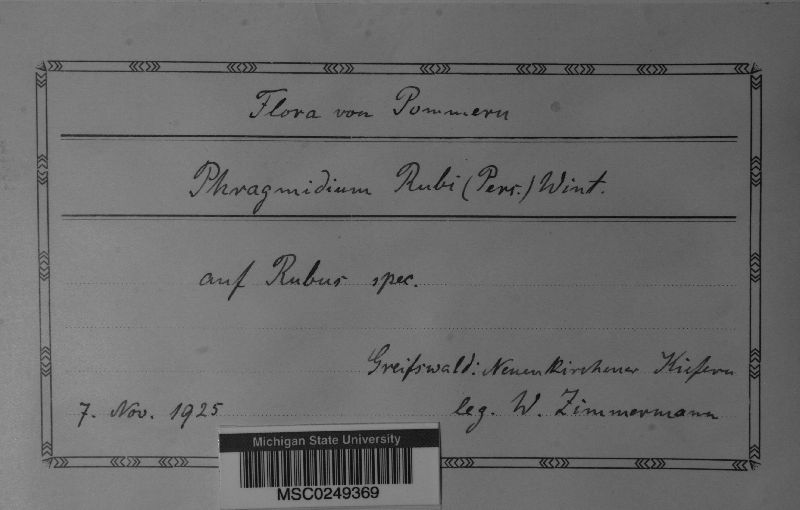 Flora von Pommern
Phragmidium Rubi (Pers.) Wint.
auf Rubus spec.
Greifswald: Neuenkirchener Kiefern
7. Nov. 1925
leg. W. Zimmermann
Michigan State University
MSC0249369